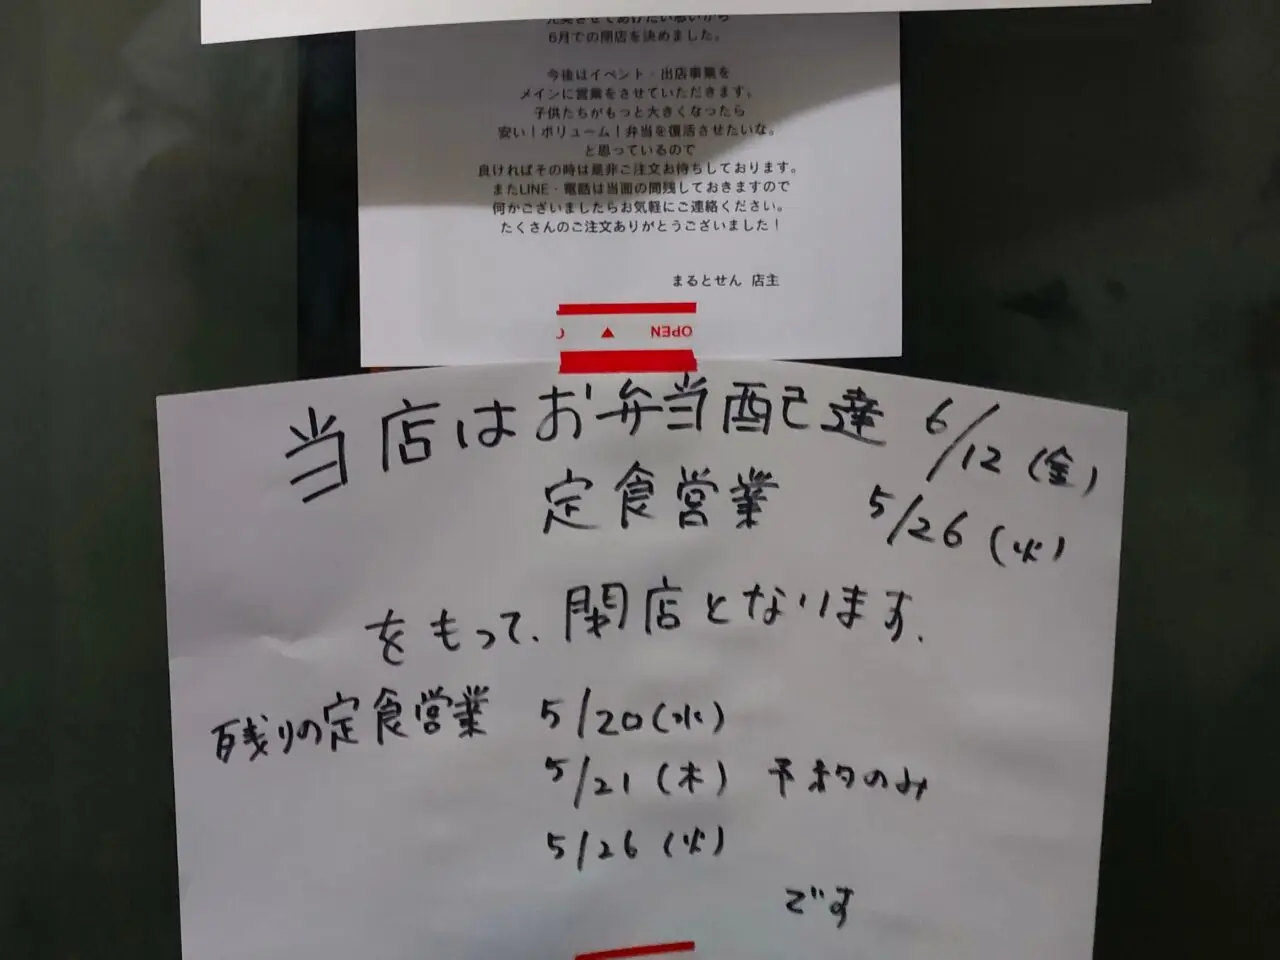 充実させてあげたい思いから
6月での閉店を決めました。
今後はイベント・出店事業を
メインに営業をさせていただきます。
子供たちがもっと大きくなったら
安い！ボリューム！弁当を復活させたいな。
と思っているので
良ければその時は是非ご注文お待ちしております。
またLINE・電話は当面の間残しておきますので
何かございましたらお気軽にご連絡ください。
たくさんのご注文ありがとうございました！
まるとせん 店主
OPEN
当店はお弁当配達 6/12(金)
定食営業 5/26(火)
をもって、閉店となります.
残りの定食営業 5/20(水)
5/21(木) 予約のみ
5/26(火)
です